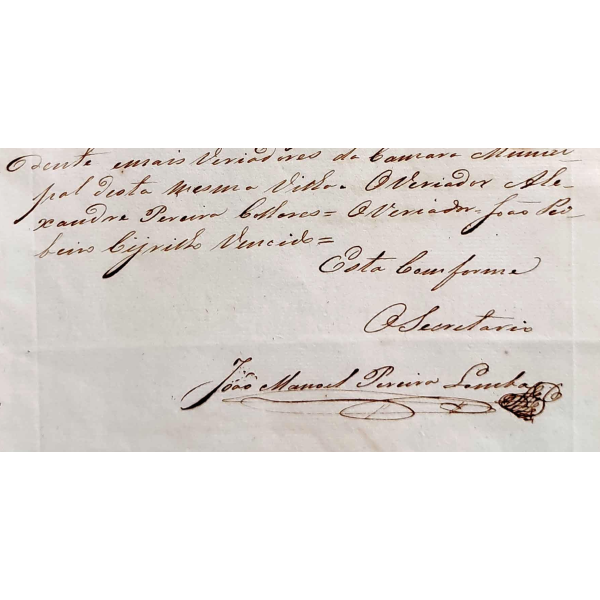 dente emais Veriadores da Camara Munici-
pal desta mesma Villa. O Veriador Ale-
xandre Pereira Collares = O Veriador João Ri-
beiro Vencido =
Esta Comforme
O Secretario
João Manoel Pereira